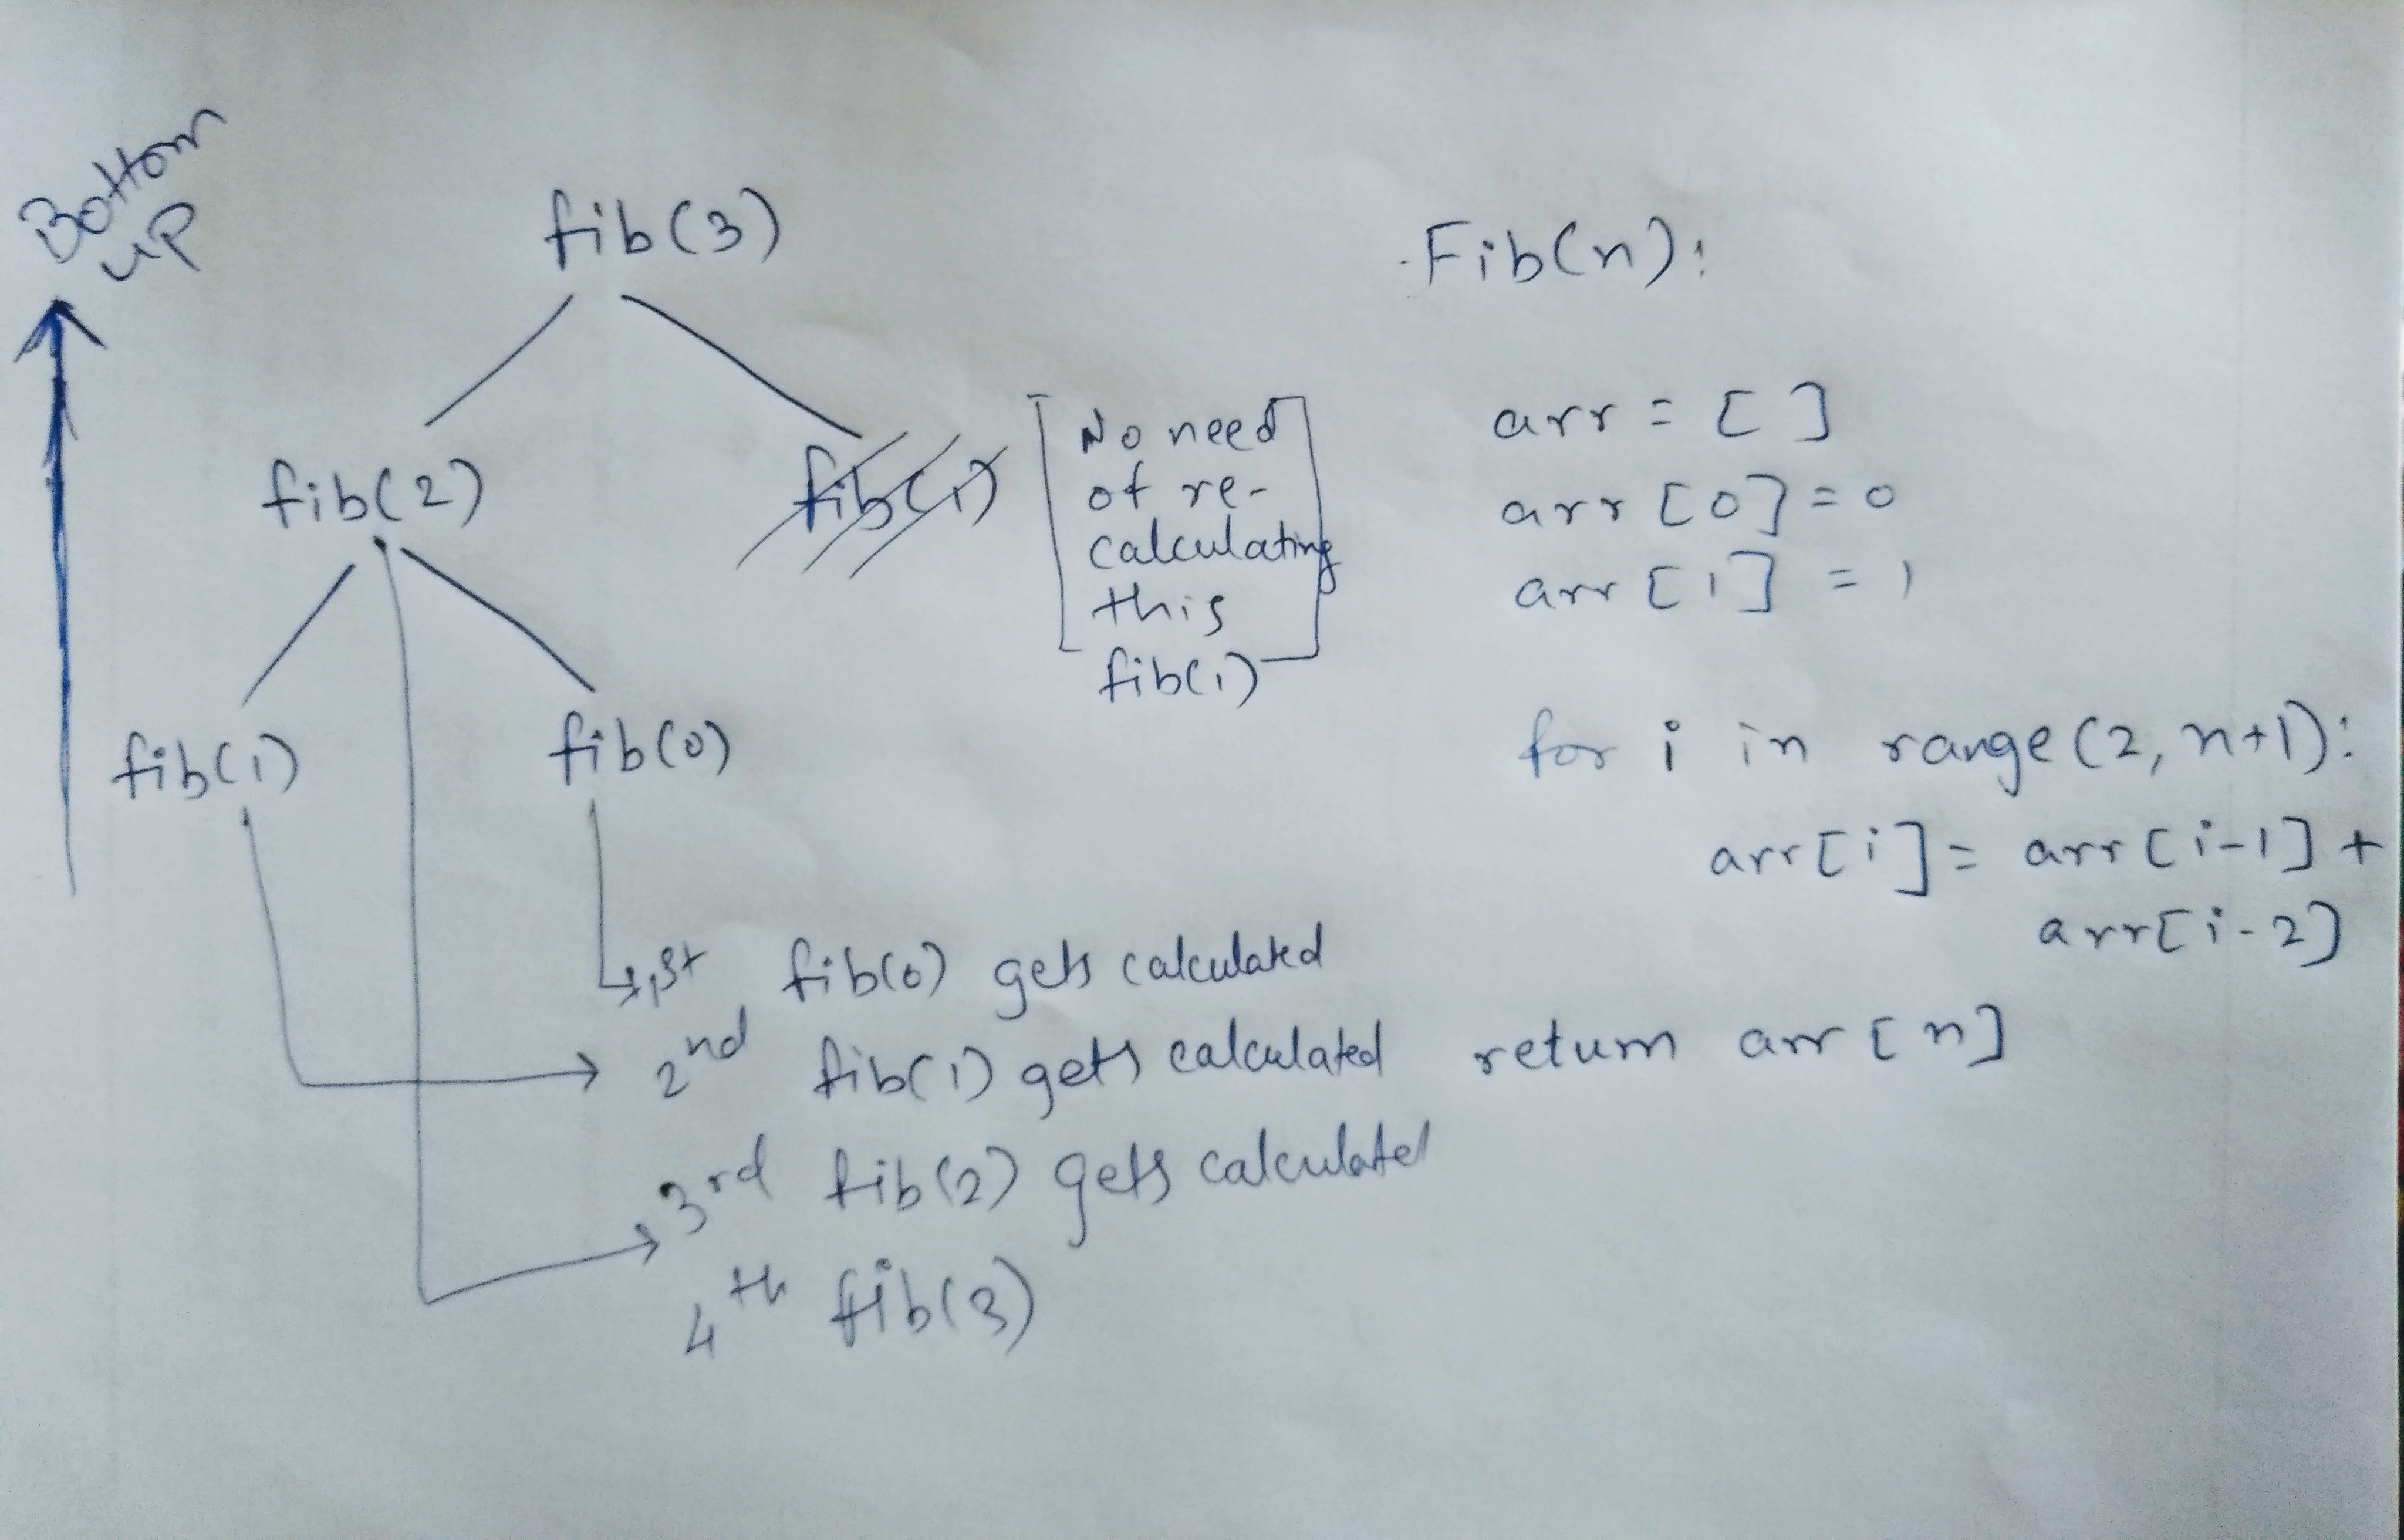 Bottom
up
fib(3)
fib(2)
fib(1)
No need
of re-
calculating
this
fib(1)
fib(1)
fib(0)
1st fib(0) gets calculated
2nd fib(1) gets calculated
3rd fib(2) gets calculated
4th fib(3)
Fib(n):
arr = [ ]
arr [0] = 0
arr [1] = 1
for i in range (2, n+1):
arr[i] = arr[i-1] +
arr[i-2]
return arr [n]